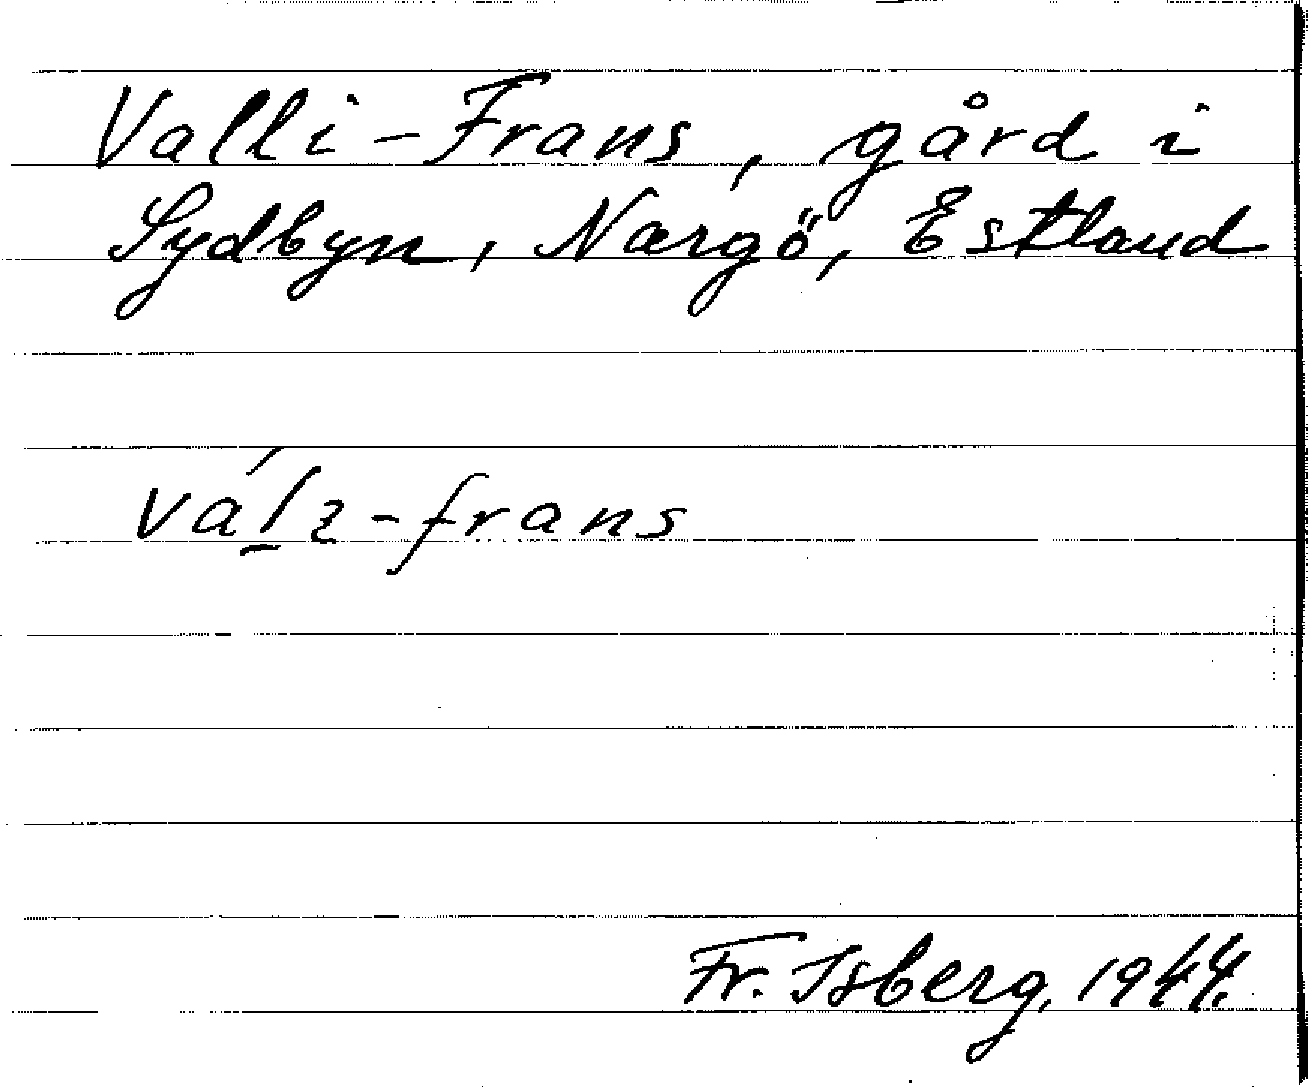 Valli-Frans, gård i
Sydbyn, Nargö, Estland
vál̠ɩ-frans
Fr. Isberg, 1944.